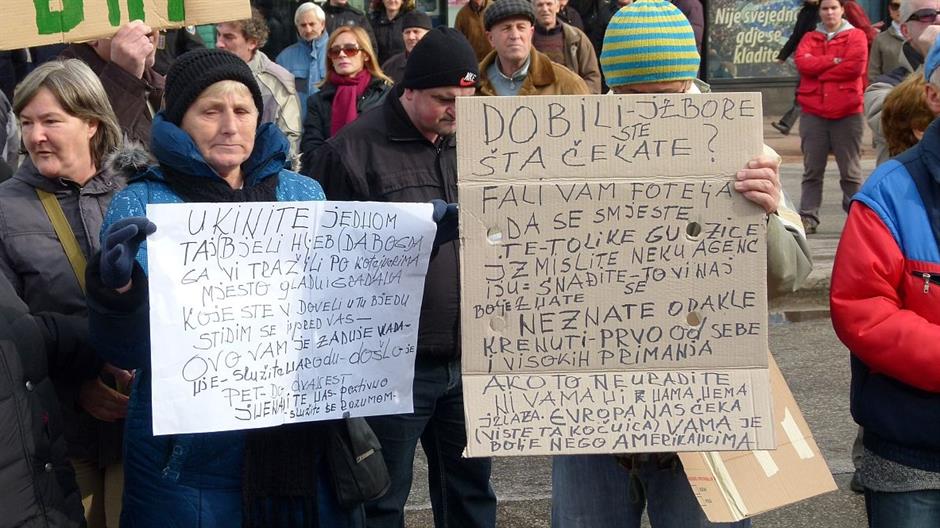 Nije svejedno
gdje se
kladite
NIKE
UKINITE JEDNOM
TAJ (B)JELI HLEB (DABOGDA
GA VI TRAŽILI PO KOTEJNORIMA
MJESTO GLADNI GRAĐANA
KOJE STE DOVELI U TU BJEDU
STIDIM SE ISPRED VAS-
OVO VAM JE ZADNJE VLADA-
NJE- SLUŽITE NARODU- DOŠLO JE
PET- DO DVANEST
SLUŽITE SE RAZUMOM-
DOBILI-IZBORE
STE
ŠTA ČEKATE?
FALI VAM FOTELJA
DA SE SMJESTE
TE-TOLIKE GUZICE
IZMISLITE NEKU AGENC
IJU= SNAĐITE-TO VI NAJ
SE
BOLJE ZNATE
NEZNATE ODAKLE
KRENUTI-PRVO OD SEBE
I VISOKIH PRIMANJA
AKO TO NEURADITE
NI VAMA NI NAMA NEMA
IZLAZA. EVROPA NAS ČEKA
(VI STE TA KOČNICA) VAMA JE
BOLJE NEGO AMERIKANCIMA